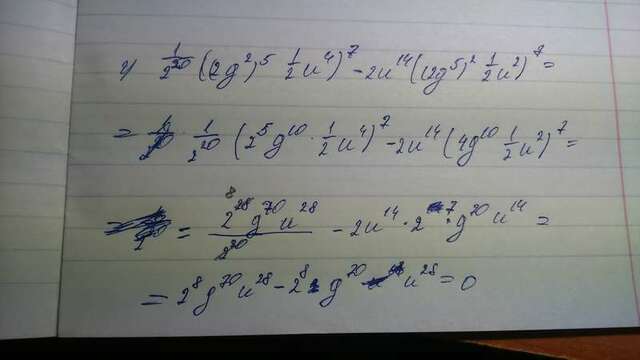 г) 1/2²⁰ ((2g²)⁵ 1/2 u⁴)⁷ - 2u¹⁴((2g⁵)² 1/2 u²)⁷ =
= 1/2²⁰ (2⁵g¹⁰ · 1/2 u⁴)⁷ - 2u¹⁴(4g¹⁰ 1/2 u²)⁷ =
= 2²⁸g⁷⁰u²⁸/2²⁰ 8 - 2u¹⁴ · 2⁷ · g⁷⁰ u¹⁴ =
= 2⁸g⁷⁰u²⁸ - 2⁸ g⁷⁰ u²⁸ = 0